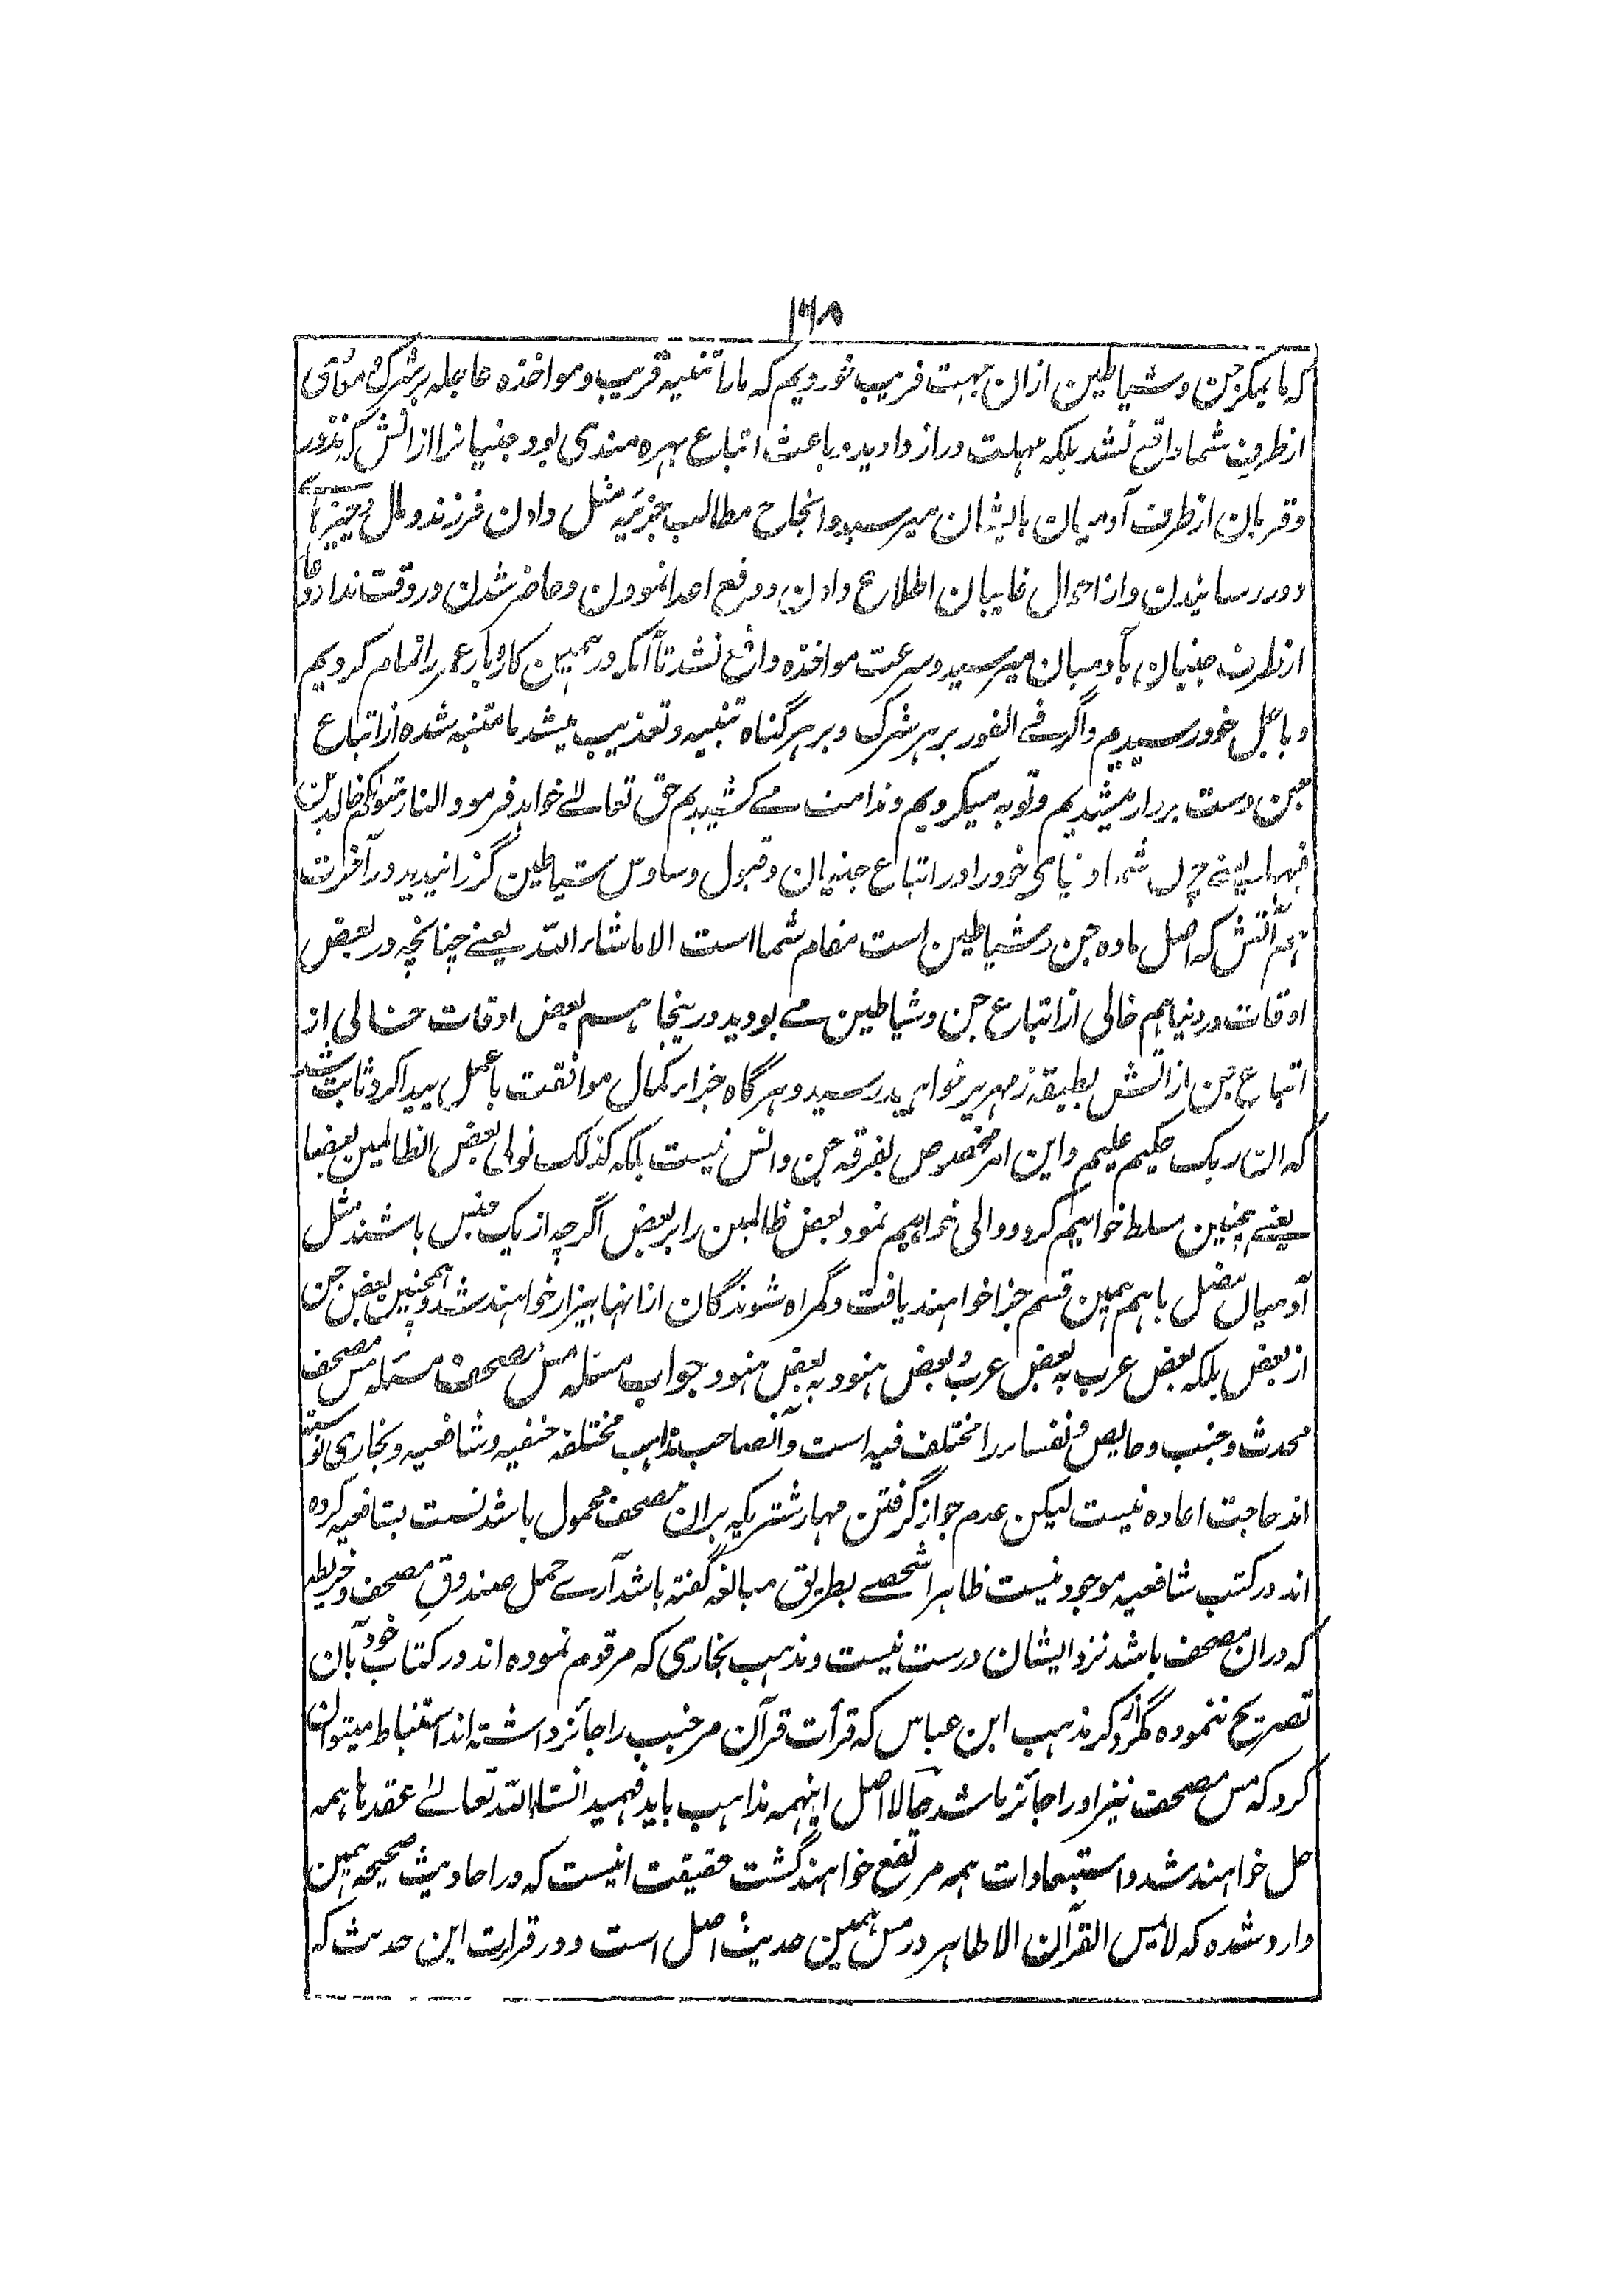 ۱۶۸
که ما بمکر جن و شیاطین ازان جهت فریب خوردیم که ما را تنبیه قریب و مواخذه عاجله بر شرک و معاصی
از طرف شما واقع نشد بلکه مهلت دراز دادید باعث اتباع بهره مندی بود و جنیانرا از انس که نذور
و قربان از طرف آدمیان بایشان میرسید و انجاح مطالب جزئیه مثل دادن فرزند و مال و چیز ها
دور رسانیدن و از احوال غایبان اطلاع دادن و دفع اعدا نمودن و حاضر شدن در وقت ندا و دعا
از طرف جنیان بآدمیان میرسید و سرعت مواخذه واقع نشد تا آنکه در همین کاروبار عمر را تمام کردیم
و باجل خود رسیدیم و اگر فی الفور بر هر شرک و بر هر گناه تنبیه و تعذیب میشد ما متنبه شده از اتباع
جن دست بردار میشدیم و توبه میکردیم و ندامت مے کشیدیم حق تعالے خواهد فرمود النار مثوٰکم خالدین
فیها یعنے چون شما دنیای خود را در اتباع جنیان و قبول وساوس شیاطین گزرانیدید در آخرت
هم آتش که اصل ماده جن و شیاطین است مقام شما است الا ماشاء اللّه یعنے چنانچه در بعض
اوقات در دنیا هم خالی از اتباع جن و شیاطین مے بودید درینجا هم بعض اوقات خالی از
اتباع جن از آتش بطبقه زمهریر خواهید رسید و هر گاه جزا را کمال موافقت با عمل پیدا کرد ثابت شد
که ان ربک حکیم علیم و این امر مخصوص بفرقه جن و انس نیست بلکه کذلک نولی بعض الظالمین بعضا
یعنے همچنین مسلط خواهیم کرد و والی خواهیم نمود بعض ظالمین را بر بعض اگرچه از یک جنس باشند مثل
آدمیان مضل با هم همین قسم جزا خواهند یافت و گمراه شوندگان ازانها بیزار خواهند شد و همچنین بعض جن
از بعض بلکه بعض عرب به بعض عرب و بعض هنود به بعض هنود جواب مسئله مس مصحف مسئله مس مصحف
محدث و جنب و حایض و نفساء را مختلف فیه است و آنصاحب مذاهب مختلفه حنفیه و شافعیه و بخاری نوشته
اند حاجت اعاده نیست لیکن عدم جواز گرفتن مهار شتریکه بران مصحف محمول باشد نسبت بشافعیه کرده
اند در کتب شافعیه موجود نیست ظاهرا شخصے بطریق مبالغه گفته باشد آرے حمل صندوق مصحف و خریطه
که دران مصحف باشد نزد ایشان درست نیست و مذهب بخاری که مرقوم نموده اند در کتاب خود بآن
تصریح ننموده مگر از ذکر مذهب ابن عباس که قرأت قرآن مر جنب را جائز داشته اند استنباط میتوان
کرد که مس مصحف نیز او را جائز باشد حالا اصل اینهمه مذاهب باید فهمید انشاء اللّه تعالے عقدها همه
حل خواهند شد و استبعادات همه مرتفع خواهند گشت حقیقت اینست که در احادیث صحیحه همین
وارد شده که لا یمس القرآن الا طاهر در مس همین حدیث اصل است و در قرات این حدیث که